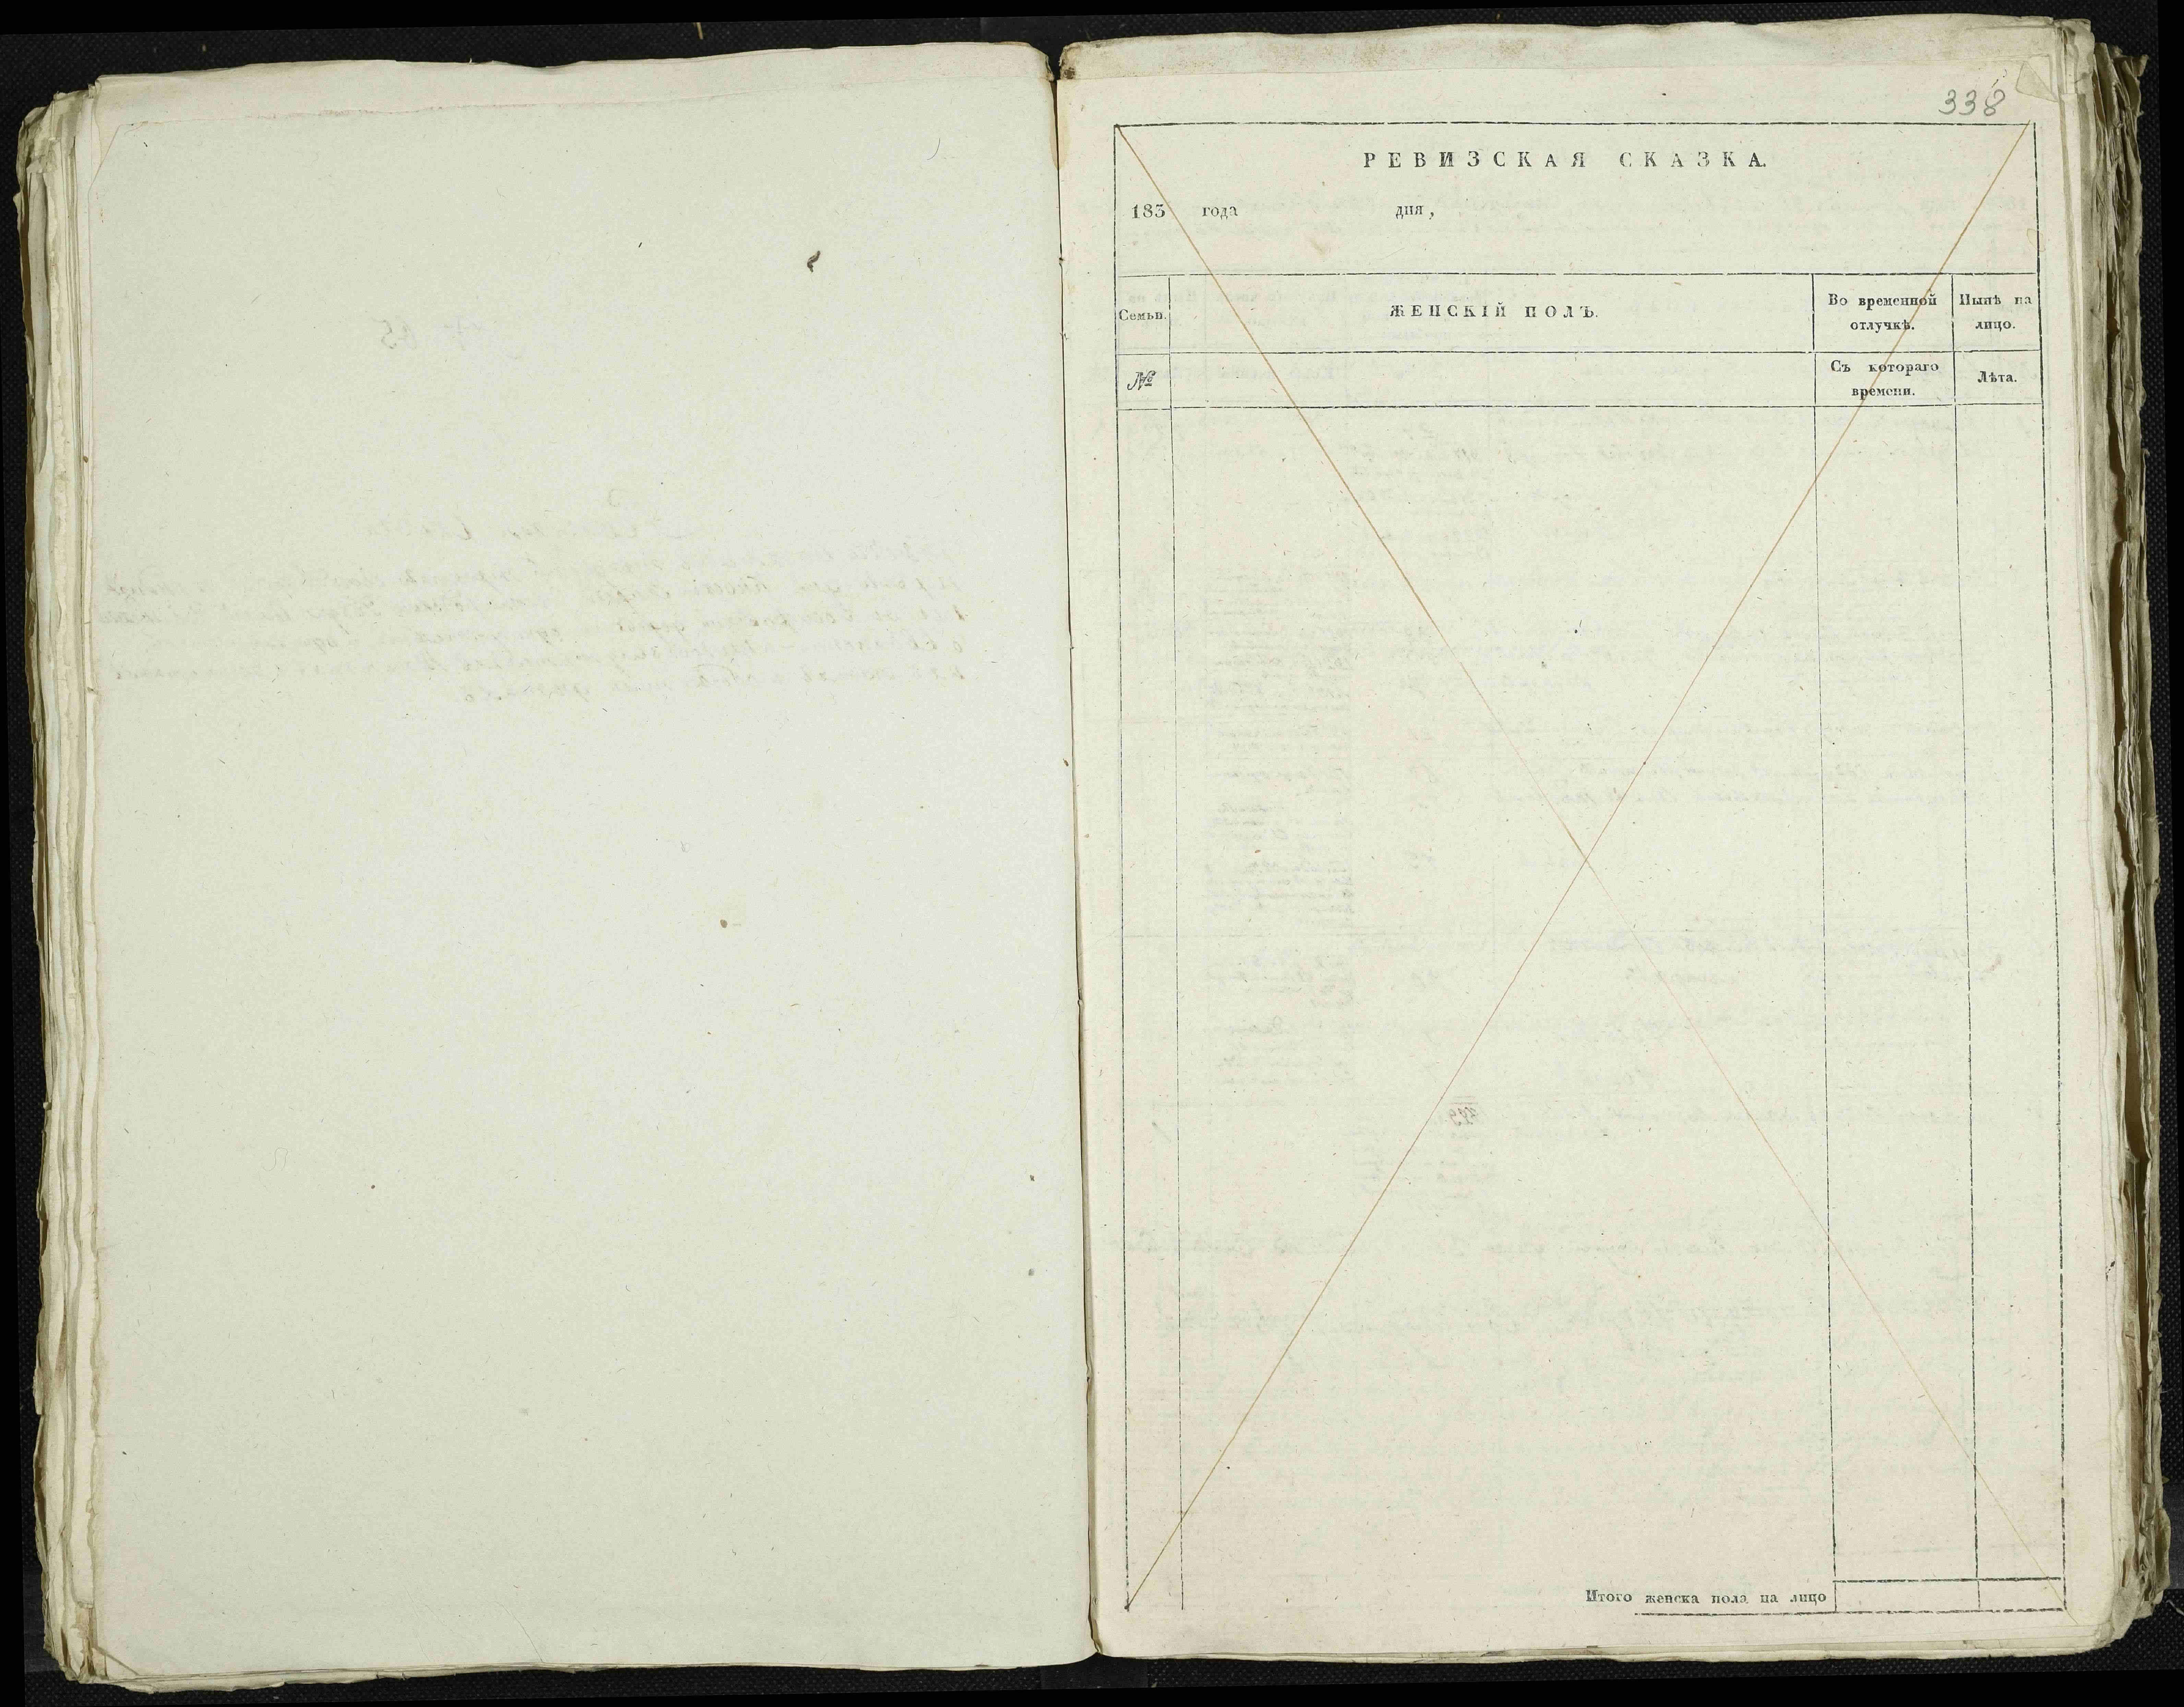 338
РЕВИЗСКАЯ СКАЗКА.
183 года дня,
Семьи.
ЖЕНСКІЙ ПОЛЪ.
Во временной
отлучкѣ.
Нынѣ на
лицо.
№
Съ котораго
времени.
Лѣта.
Итого женска пола на лицо